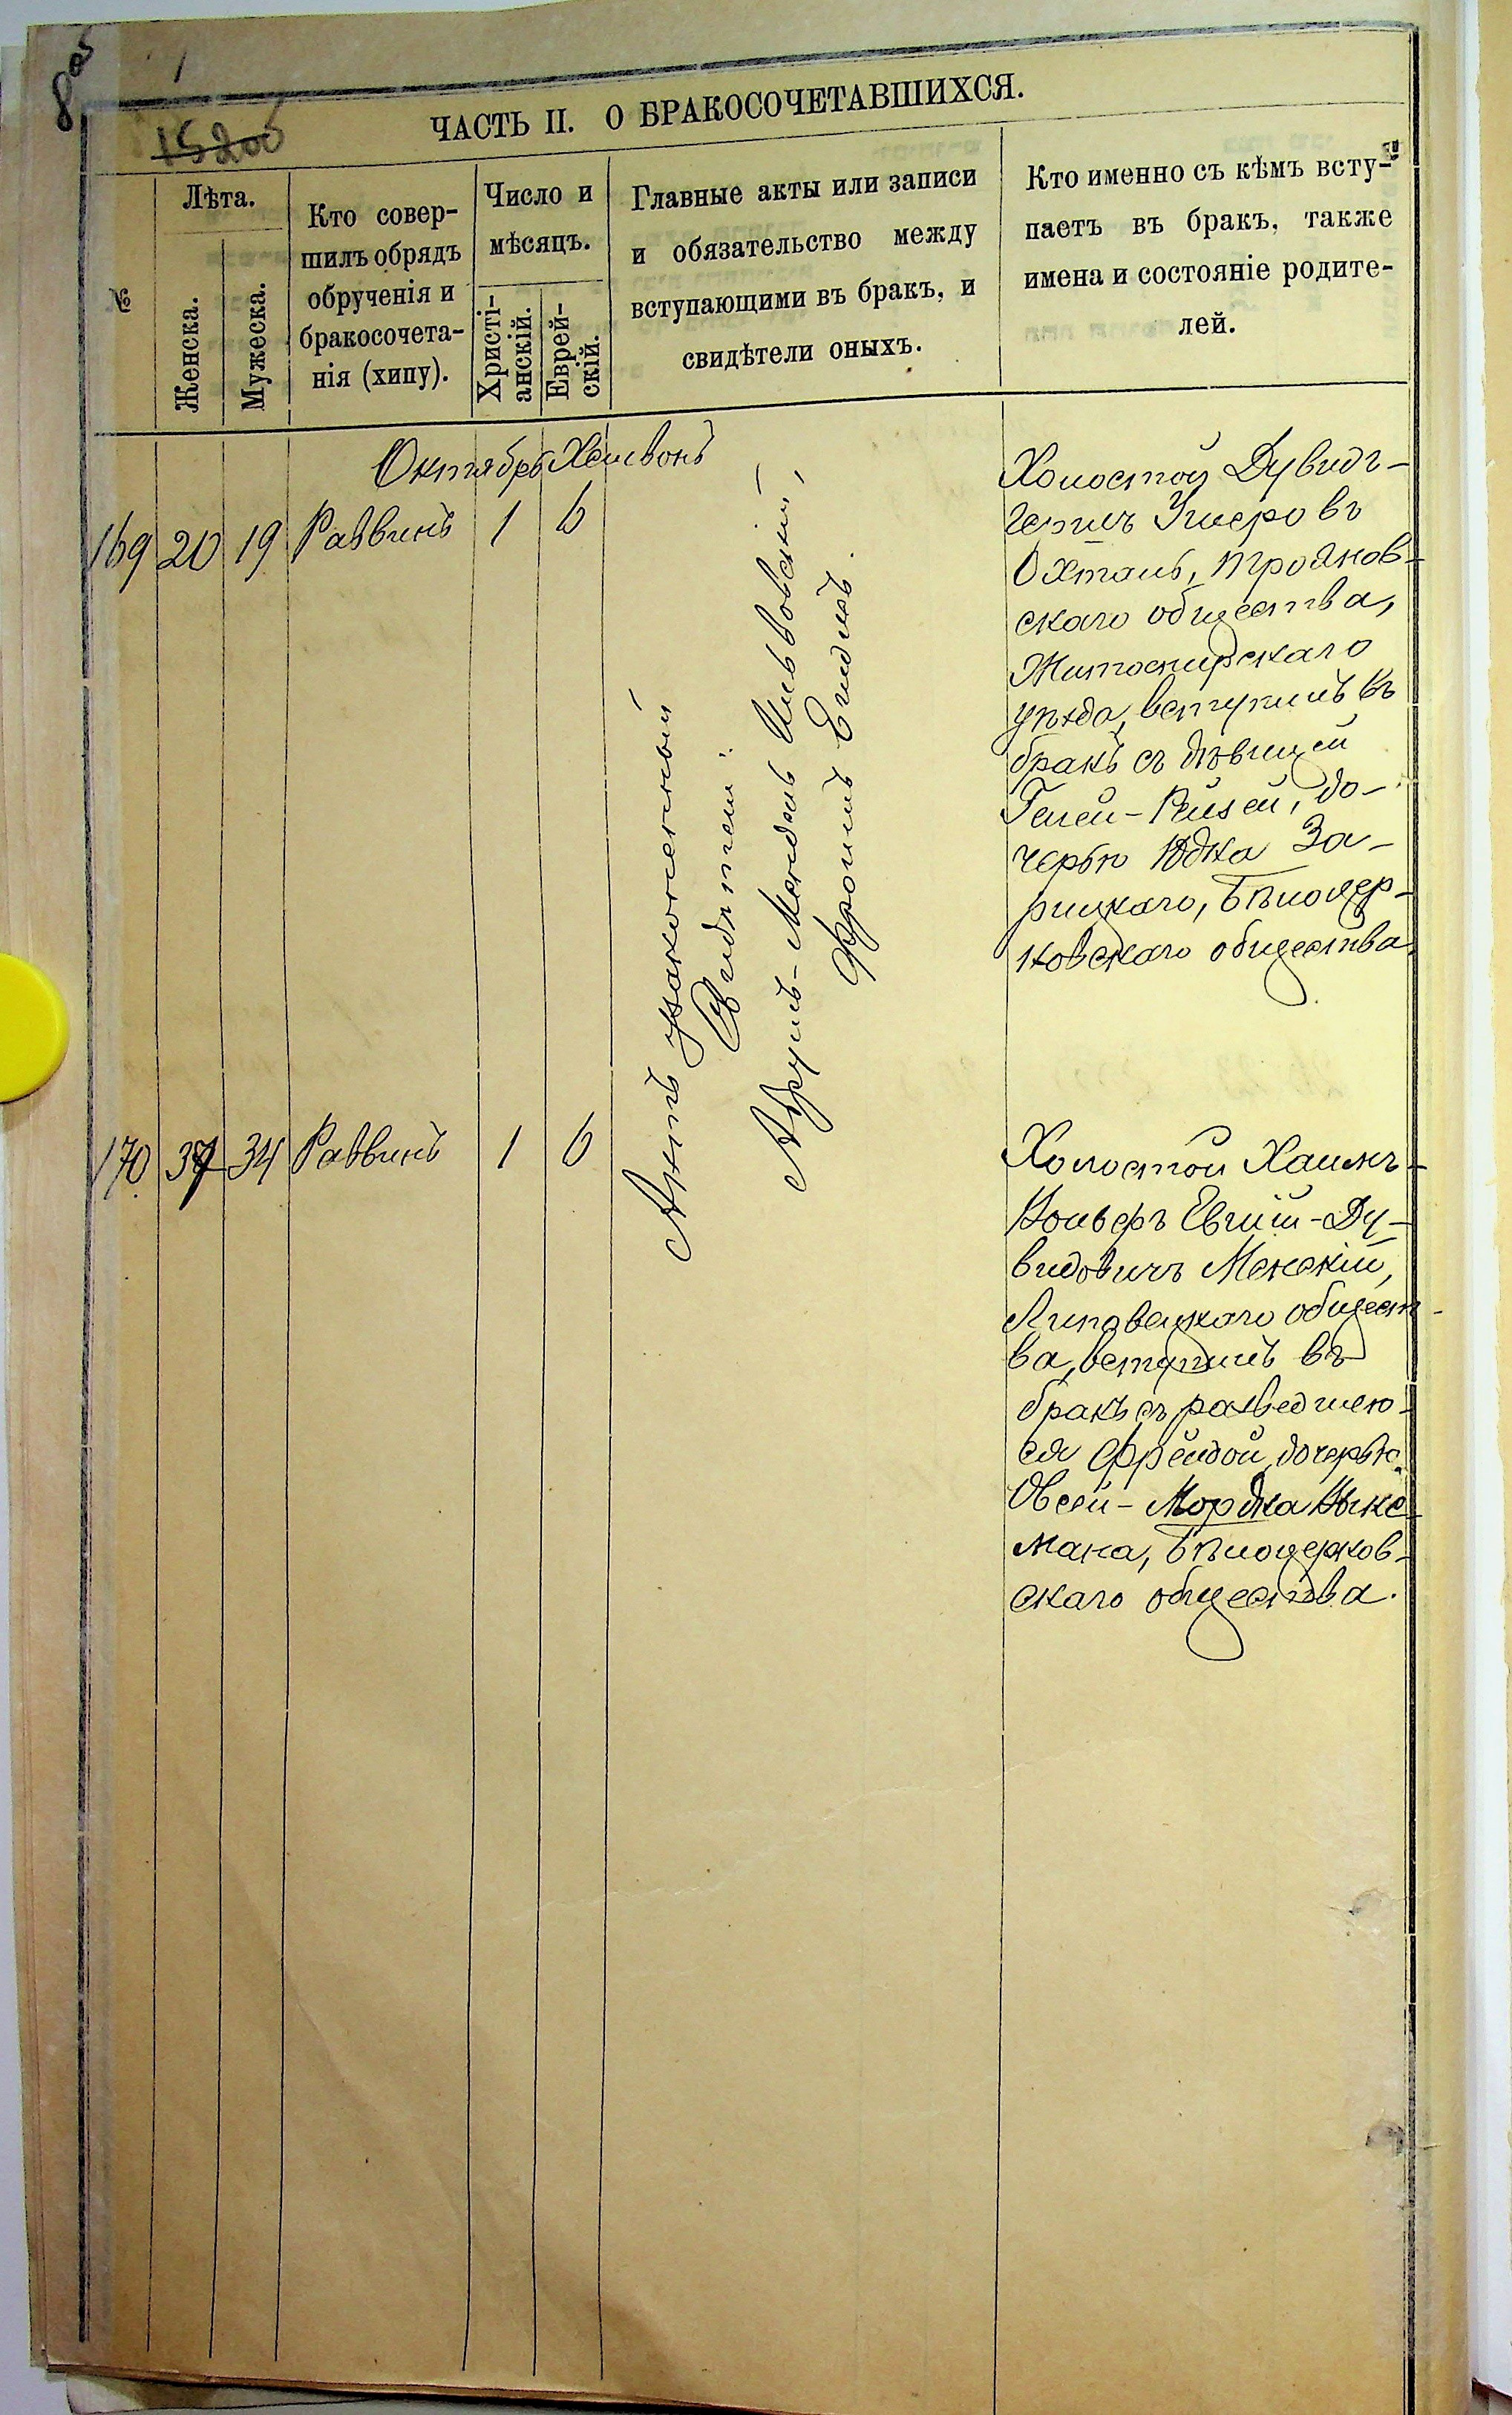 805
15200
ЧАСТЬ II. О БРАКОСОЧЕТАВШИХСЯ.
№
Лѣта.
Женска.
Мужеска.
Кто совер-
шилъ обрядъ
обрученія и
бракосочета-
нія (хипу).
Число и
мѣсяцъ.
Христі-
анскій.
Еврей-
скій.
Главные акты или записи
и обязательство между
вступающими въ бракъ, и
свидѣтели оныхъ.
Кто именно съ кѣмъ всту-
паетъ въ бракъ, также
имена и состояніе родите-
лей.
Октябрь Хешвонъ
169 20 19 Раввинъ 1 6
Актъ узаконенный
Свидѣтели:
Аврумъ-Мендель Ильвовскій,
Фроимъ Ендикъ.
Холостой Дувидъ-
Гершъ Ушеровъ
Охталь, Трояновъ-
скаго общества,
Житомирскаго
уѣзда, вступилъ въ
бракъ съ дѣвицей
Гелей-Рейзей, до-
черью Юдка За-
рицкаго, Бѣлоцер-
ковскаго общества.
170 37 34 Раввинъ 1 6
Холостой Хаимъ-
Вольфъ Евгиш-Ду-
видовичъ Менскій,
Липовецкаго общест-
ва, вступилъ въ
бракъ съ разведшею-
ся Фрейдой, дочерью
Овсей-Мордка
мана, Бѣлоцерков-
скаго общества.